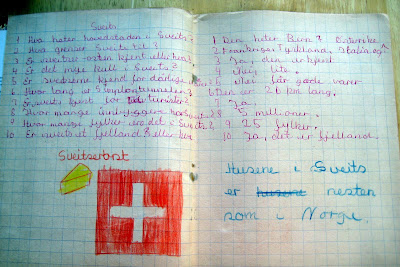 Sveits
1 Hva heter hovedstaden i Sveits?
2 Hva grenser Sveits til?
3 Er sveitser osten kjent
4 Er det mye hull i Sveits?
5 Er sveitserne kjend for dårlige
6 Hvor lang er
7 Er sveits kjent for turister?
8 Hvor mange innbyggere har
9 Hvor mange fylker er det i Sveits?
10 Er sveits et fjelland eller
Sveitserost
1 Den heter Bern.
2 Frankrike, Tyskland, Italia og
3 Ja, den er kjent
4 Nei, lite.
5 Nei får gode varer
6 Den er 20 km lang.
7 Ja.
8 5 millioner.
9 25 fylker.
10 Ja, det er fjelland.
Husene i Sveits
er nesten
som i Norge.